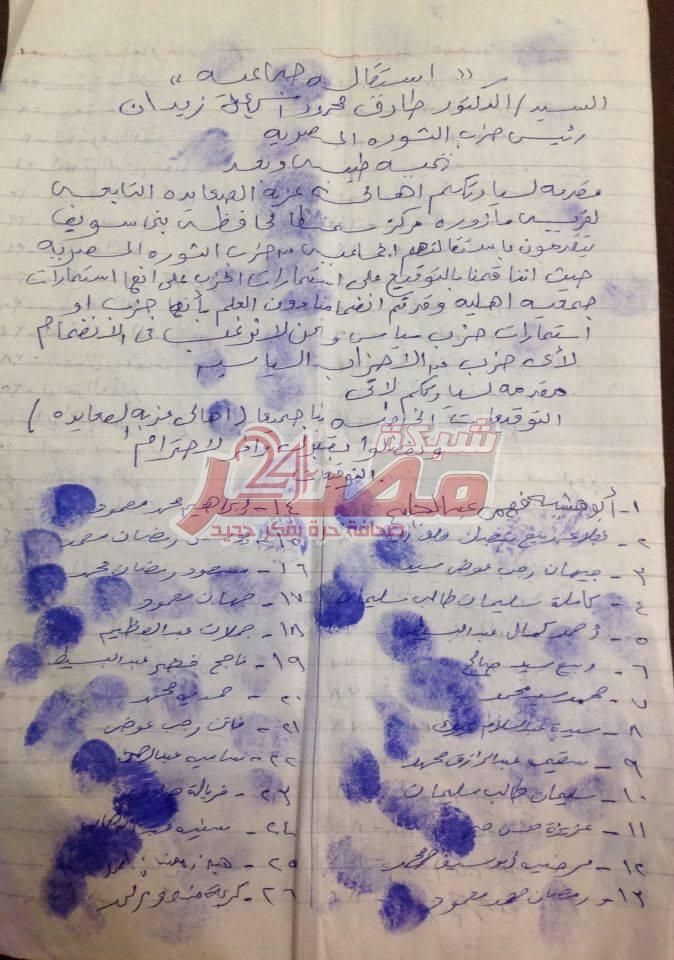 « استقاله جماعيه »
السيد / الدكتور طارق محمود اسماعيل زيدان
رئيس حزب الثوره المصريه
تحيه طيبه وبعد
مقدمه لسيادتكم اهالى عزبة الصعايده التابعه
لقرية مازوره مركز سمسطا محافظة بنى سويف
يتقدمون باستقالتهم الجماعيه من حزب الثوره المصريه
حيث اننا قمنا بالتوقيع على استمارات الحزب على انها استمارات
جمعيه اهليه وقد تم انضمامنا دون العلم بأنها حزب او
استمارات حزب سياسى ونحن لا نرغب فى الانضمام
لأى حزب من الاحزاب السياسيه
مقدمه لسيادتكم
التوقيعات الخاصه بنا جميعا ( اهالى عزبه الصعايده )
وتفضلوا بقبول الاحترام
التوقيعات
شبكة
مصر 24
صحافة حرة بفكر جديد
١- أبو هشيمه فهمى عبد
٢- ربيع
٣- جيهان رجب عوض سيد
٤- كاملة سليمان طالب سليمان
٥- احمد كمال عبد البسيط
٦- ربيع سيد صالح
٧- سيد محمد
٨- سيدة عبد السلام
٩- عبد الرازق محمد
١٠- سليمان طالب سليمان
١١- عزيزة حسن
١٢-
١٣- رمضان محمد محمود
١٤- ابراهيم محمد محمود
١٥- رمضان محمد
١٦- مسعود رمضان محمد
١٧- جهان محمود
١٨- جملات عبد العظيم
١٩- ناجح خضير عبد البسيط
٢٠- محمد
٢١- فاتن رجب عوض
٢٢- ساميه
٢٣- فريالة
٢٤-
٢٥-
٢٦- كريمة